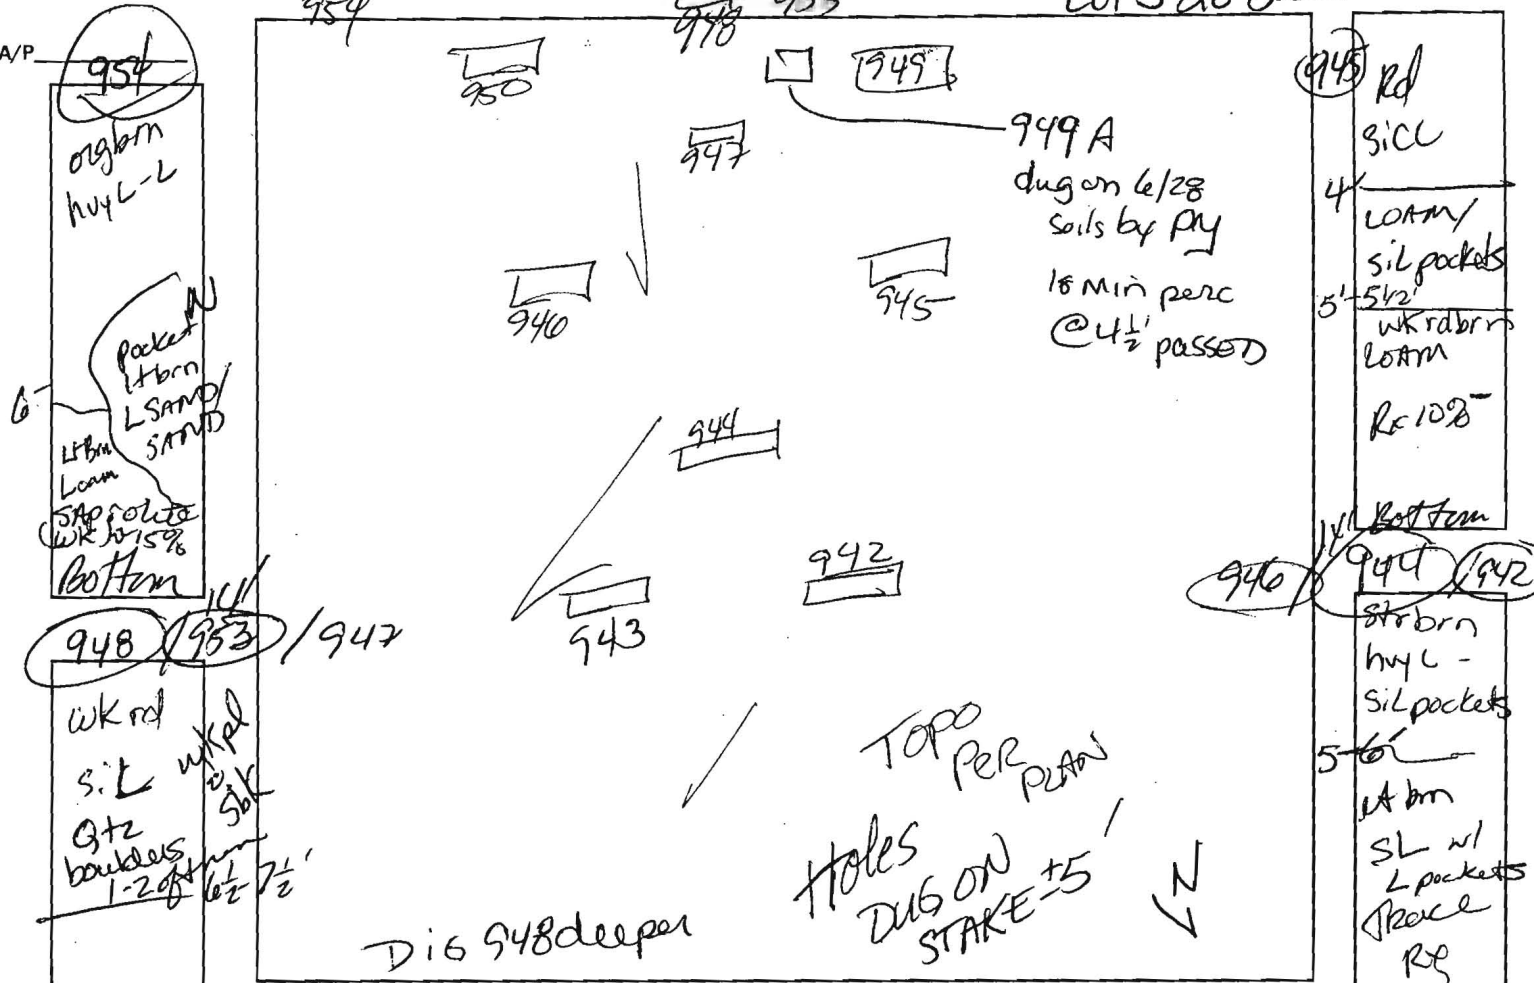 954
948
953
A/P
954
orgbrn
hvy L-L
6'
pocket
ltbrn
L SAND/
SAND
Lt Brn
Loam
SAProlite
15%
Bottom
14'
948 / 953 / 947
wk rd
siL
wk pl
sbk
Qtz
boulders
1-2 ft
6½-7½'
950
949
947
949A
dug on 6/28
soils by
18 Min perc
@ 4½' PASSED
946
945
944
942
943
TOPO
PER
PLAN
Holes
DUG ON
STAKE ±5'
N
DiG 948 deeper
945
Rd
SiCL
4'
LOAM/
siL pockets
5'-5½'
wk rdbrn
LOAM
RF 10%-
Bottom
14'
946 / 944 / 942
Strbrn
hvy L -
SiL pockets
5-6'
Lt brn
SL w/
L pockets
Trace